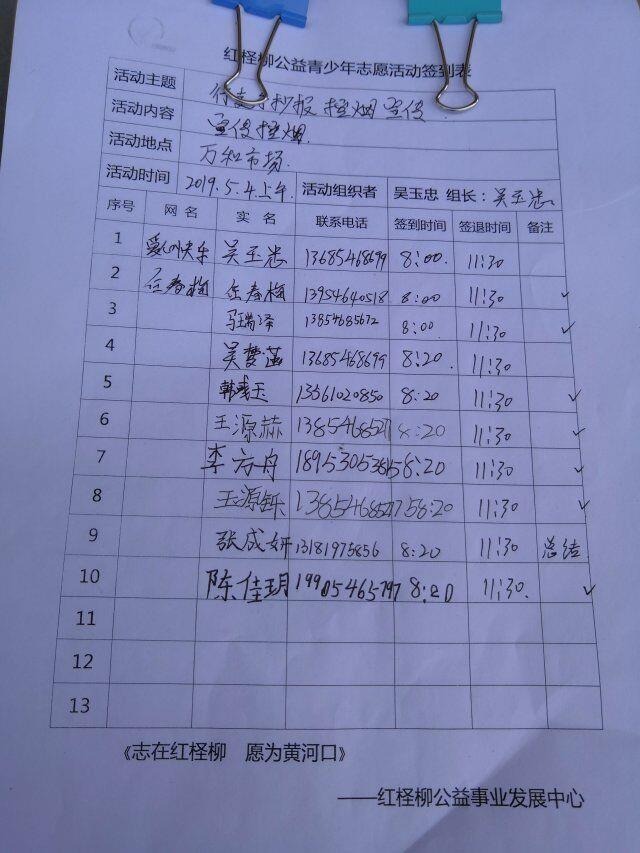 红柽柳公益青少年志愿活动签到表
活动主题 抄报 控烟 宣传
活动内容 宣传控烟.
活动地点 万和市场.
活动时间 2019.5.4上午. 活动组织者 吴玉忠 组长：吴玉忠
序号 网 名 实 名 联系电话 签到时间 签退时间 备注
1 快乐 吴玉忠 13685468699 8:00. 11:30
2 任春梅 任春梅 13954640518 8:00 11:30 ✓
3 马瑞泽 13854685672 8:00 11:30 ✓
4 吴梦菡 13685468699 8:20. 11:30
5 韩彧玉 13361020850 8:20 11:30 ✓
6 王源赫 8:20 11:30 ✓
7 李方舟 18953053615 8:20 11:30 ✓
8 王源铄 8:20 11:30 ✓
9 张成妍 13181975856 8:20 11:30 总结
10 陈佳玥 19905465797 8:20 11:30. ✓
11
12
13
《志在红柽柳 愿为黄河口》
——红柽柳公益事业发展中心